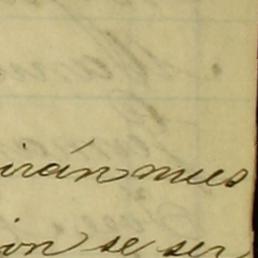 irán mues
ion se ser